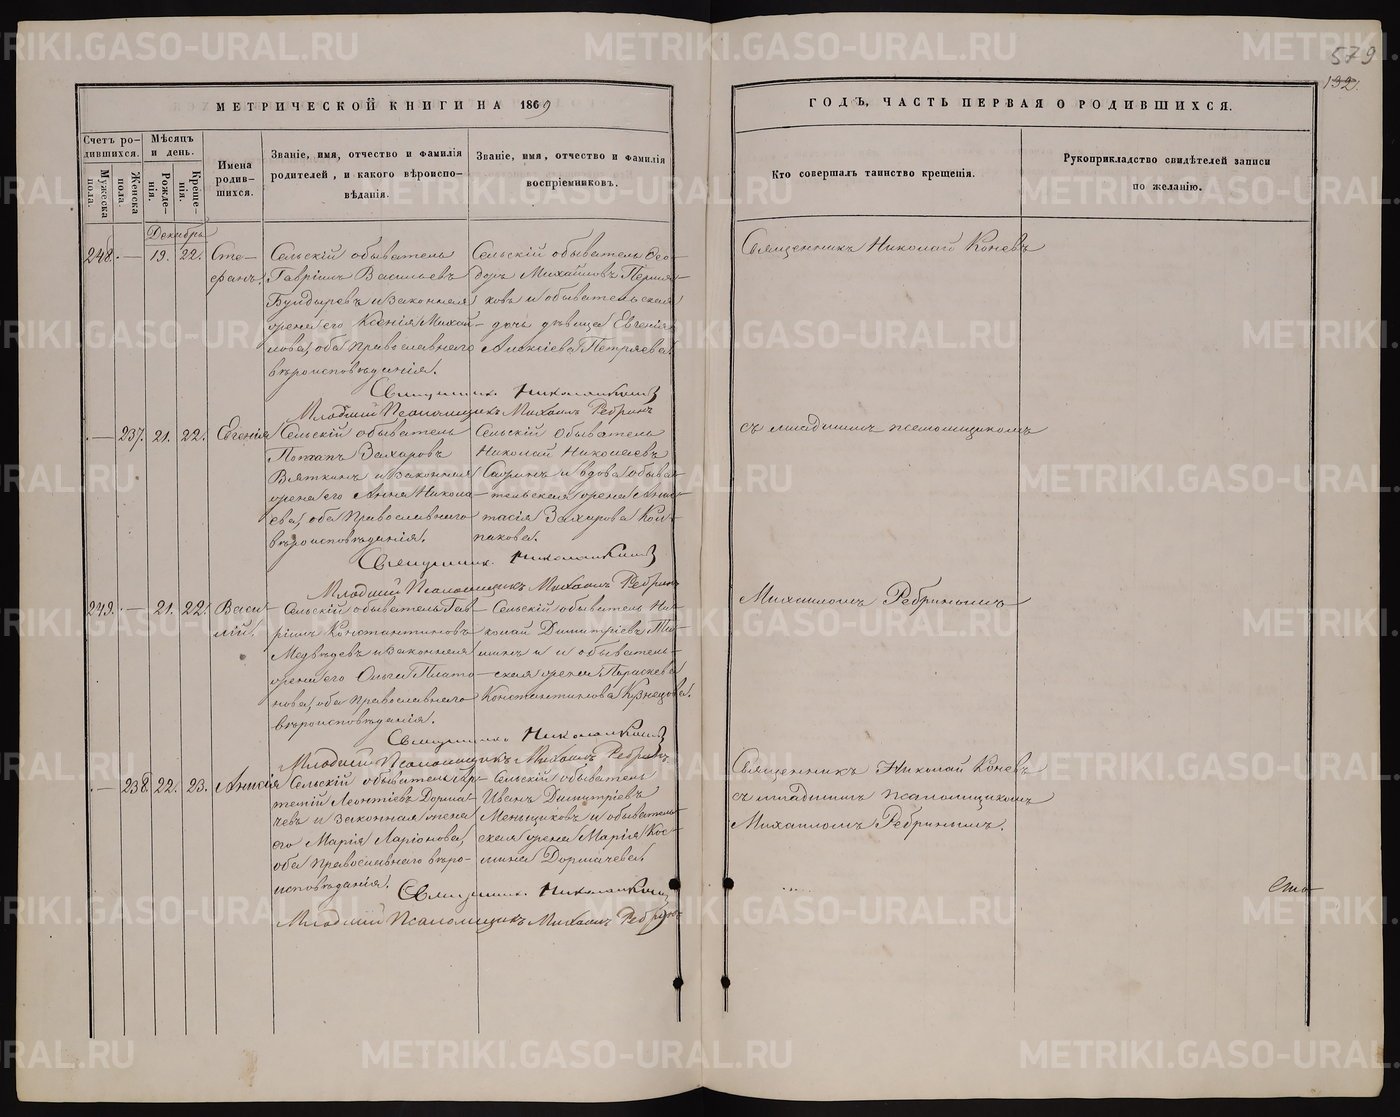 579
192.
МЕТРИЧЕСКОЙ КНИГИ НА 1869
ГОДЪ, ЧАСТЬ ПЕРВАЯ О РОДИВШИХСЯ.
Счетъ ро-
дившихся.
Мужеска
пола.
Женска
пола.
Мѣсяцъ
и день.
Рожде-
нія.
Креще-
нія.
Имена
родив-
шихся.
Званіе, имя, отчество и фамилія
родителей, и какого вѣроиспо-
вѣданія.
Званіе, имя, отчество и фамилія
воспріемниковъ.
Кто совершалъ таинство крещенія.
Рукоприкладство свидѣтелей записи
по желанію.
Декабрь
248. — 19. 22.
Сте-
фанъ
Сельскій обыватель
Гавріилъ Васильевъ
Булдыревъ и законная
жена его Ксенія Михай-
лова, оба Православнаго
вѣроисповѣданія.
Сельскій обыватель Ѳео-
доръ Михайловъ Пермя-
ковъ и обывательская
дочь дѣвица Евгенія
Алексіева Петряева.
Священникъ Николай Коневъ
Младшій Псаломщикъ Михаилъ Ребринъ
Священникъ Николай Коневъ
— 237. 21. 22.
Евгенія
Сельскій обыватель
Потапъ Захаровъ
Вяткинъ и законная
жена его Анна Никола-
ева, оба Православнаго
вѣроисповѣданія.
Сельскій обыватель
Николай Николаевъ
и вдова обыва-
тельская жена Анас-
тасія Захарова Кол-
пакова.
Священникъ Николай Коневъ
Младшій Псаломщикъ Михаилъ Ребринъ
съ младшимъ псаломщикомъ
249. — 21. 22.
Васи-
лій
Сельскій обыватель Гав-
ріилъ Константиновъ
Медвѣдевъ и законная
жена его Ольга Плато-
нова, оба Православнаго
вѣроисповѣданія.
Сельскій обыватель Ни-
колай Димитріевъ
и обыватель-
ская жена Параскева
Константинова Кузнецова.
Священникъ Николай Коневъ
Младшій Псаломщикъ Михаилъ Ребринъ
Михаиломъ Ребринымъ
— 238. 22. 23.
Анисія
Сельскій обыватель Ар-
темій Леонтіевъ Дорма-
чевъ и законная жена
его Марія Ларіонова,
оба Православнаго вѣро-
исповѣданія.
Сельскій обыватель
Иванъ Димитріевъ
Меньщиковъ и обыватель-
ская жена Марія Кос-
мина Дормачева.
Священникъ Николай Коневъ
Младшій Псаломщикъ Михаилъ Ребринъ
Священникъ Николай Коневъ
съ младшимъ псаломщикомъ
Михаиломъ Ребринымъ.
METRIKI.GASO-URAL.RU